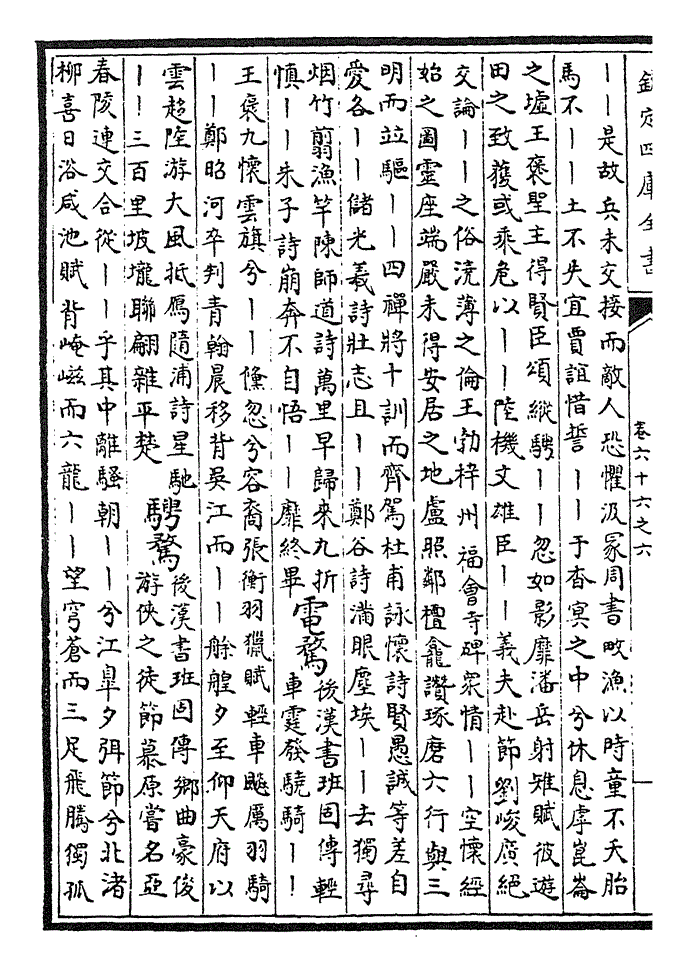 欽定四庫全書
卷六十六之六
｜｜是故兵未交接而敵人恐懼汲冢周書畋漁以時童不夭胎
馬不｜｜土不失宜賈誼惜誓｜｜于杳冥之中兮休息虖崑崙
之墟王褒聖主得賢臣頌縱騁｜｜忽如影靡潘岳射雉賦彼遊
田之致獲或乘危以｜｜陸機文雄臣｜｜義夫赴節劉峻廣絶
交論｜｜之俗澆薄之倫王勃梓州福會寺碑衆情｜｜空懷經
始之圖靈座端嚴未得安居之地盧照鄰檀龕讚琢磨六行與三
明而竝驅｜｜四禪將十訓而齊駕杜甫詠懷詩賢愚誠等差自
愛各｜｜儲光羲詩壯志且｜｜鄭谷詩滿眼塵埃｜｜去獨尋
烟竹翦漁竿陳師道詩萬里早歸來九折
慎｜｜朱子詩崩奔不自悟｜｜靡終畢
電騖
後漢書班固傳輕
車霆發驍騎｜｜
王褒九懷雲旗兮｜｜儵忽兮容裔張衡羽獵賦輕車飈厲羽騎
｜｜鄭昭河卒判青翰晨移背吳江而｜｜艅艎夕至仰天府以
雲超陸游大風抵鴈隨浦詩星馳
｜｜三百里坡壠聯翩雜平楚
騁騖
後漢書班固傳鄉曲豪俊
游俠之徒節慕原嘗名亞
春陵連交合從｜｜乎其中離騷朝｜｜兮江臯夕弭節兮北渚
柳喜日浴咸池賦背崦嵫而六龍｜｜望穹蒼而三足飛騰獨孤